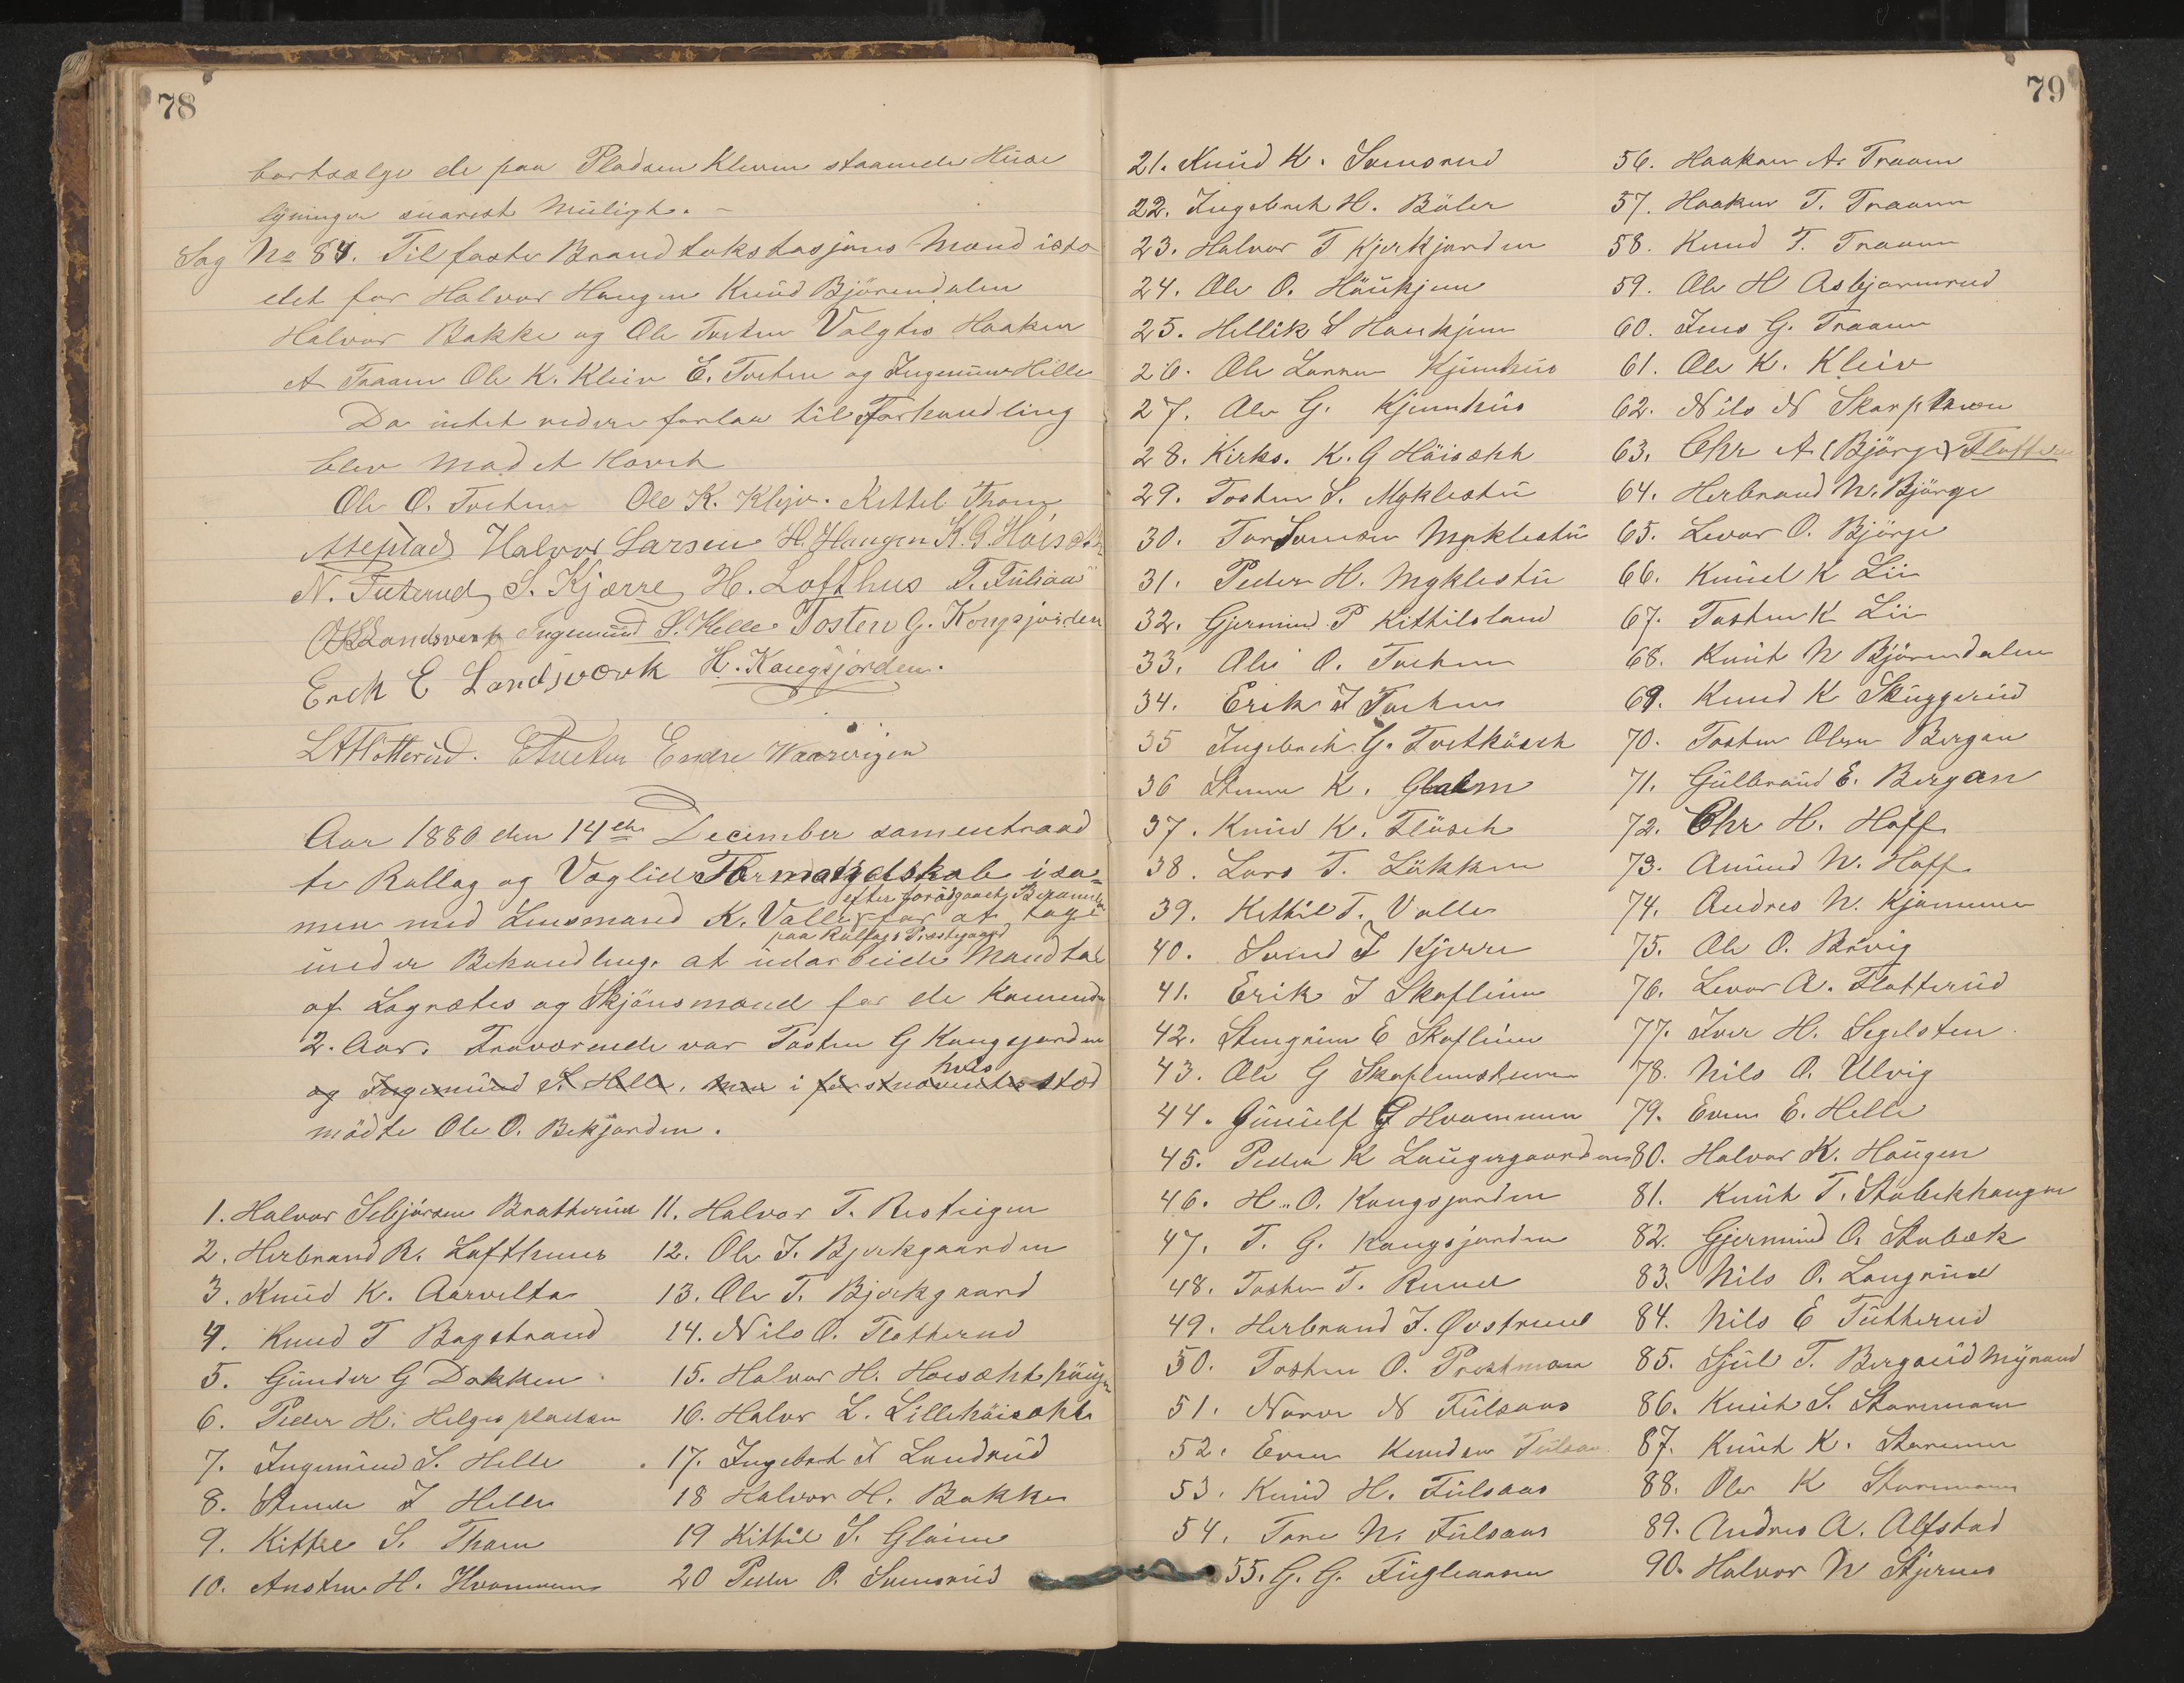 78
bortsælge de paa Pladsen Kleven staaende Huse
lyninger snarest Muligt. -
Sag No 84. Til faste Brandtakstasjons-Mænd iste-
det for Halvor Haugen Knud Björendalen
Halvor Bakke og Ole Tveten Valgtes Haaken
A Traaen Ole K. Kleiv E. Tveten og Ingemund Helle
Da intet videre forlaa til Forhandling
blev Mødet Hævet
Ole O. Tveten Ole K. Klejv. Kettel Thom
Alfstad Halvor Larsen H. Haugen K. G. Höisæth
N. Tuterud S. Kjærre H. Lofthus T. Fülsaas
Landsverk Ingemund S. Helle Tosten G. Kongsjorden
Erek E Landsverk H. Kongsjorden.
L A Flotterud. E Tveten Endre Waarvigen
Aar 1880 den 14de December samentraad
te Rollag og Væglid Formandskab isa-
men med Lensmand K. Valle efter foradgaaet Berammelse for at tage
under Behandling. at udarbeide Mandtal paa Rollags Præstegaard
af Lagrettes og Skjönsmænd for de Kommende
2. Aar. Fraværende var Tosten G Kongsjorden
og Ingemund S. Helle, men i förstnævntes hvis sted
mödte Ole O. Bekjorden.
1. Halvor Sebjörnsen Bratterud
2. Herbrand R. Lofthuus
3. Knud K. Aarvelta
4. Knud T Bagstrand
5. Gunder G Dokken
6. Peder H. Helgesplassen
7. Ingemund S. Helle
8. Steen I Helle
9. Kittel S. Thom
10. Ansten H. Hvammen
11. Halvor T. Resteigen
12. Ole I. Bjerkgaarden
13. Ole T. Bjerkgaard
14. Nils O. Flotterud
15. Halvor H. Höisæthhaugen
16. Halvor L. Lillehöisæth
17. Ingebret N Landrud
18 Halvor H. Bakke
19 Kittil S. Glaim
20 Peder O. Svensrud
79
21. Knud K. Svensrud
22. Ingebret H. Böler
23. Halvor T Kjerkjorden
24. Ole O. Haukjem
25. Hellik S Haukjem
26. Ole Larsen Kjemhus
27. Ole G. Kjemhus
28. Kirks. K. G Höisæth
29. Tosten S. Myklestu
30. Tor Svensen Myklestu
31. Peder H. Myklestu
32. Gjermund P Kittilsland
33. Ole O. Tveten
34. Erik I Tveten
35 Ingebret G. Tvetkaasa
36 Steen K. Glaim
37. Knud K. Flösch
38. Lars T. Lökken
39. Kittil T. Valle
40. Svend I Kjerre
41. Erik I Skoflum
42. Stengrim E Skoflum
43. Ole G Skoflumstuen
44. Gunulf G Hvammen
45. Peder K Laugergaarden
46. H. O. Kongsjorden
47. T. G. Kongsjorden
48. Tosten T. Ruud
49. Herbrand I. Østrud
50. Tosten O. Prestmoen
51. Narve N Fülsaas
52. Even Knudsen Fülsaas
53. Knud H. Fülsaas
54. Tore N. Fülsaas
55. G. G. Fugleaasen
56. Haakon A. Traaen
57. Haaken T. Traaen
58. Knud T. Traaen
59. Ole H Asbjørnsrud
60. Jens G. Traaen
61. Ole K. Kleiv
62. Nils N Skarpmoen
63. Chr A (Björge) Flotterud
64. Herbrand N. Björge
65. Levor O. Björge
66. Knud K Lii
67. Tosten K Lii
68. Knut N Björendalen
69. Knud K Skuggerud
70. Tosten Olsen Bergan
71. Gulbrand E. Bergan
72. Chr H. Hoff
73. Amund N. Hoff
74. Andres N. Kjømmen
75. Ole O. Bervig
76. Levor A. Flotterud
77. Iver H. Segelsten
78. Nils O. Ulvig
79. Even E. Helle
80. Halvor K. Haugen
81. Knut T. Stabækhaugen
82. Gjermund O. Stabæk
83. Nils O. Langrud
84. Nils E Tutterud
85. Sjul T. Bergsrudmyrand
86. Knut S. Skarmoen
87. Knut K. Skaremoen
88. Ole K Skarmoen
89. Andres A. Alfstad
90. Halvor N Stjernes